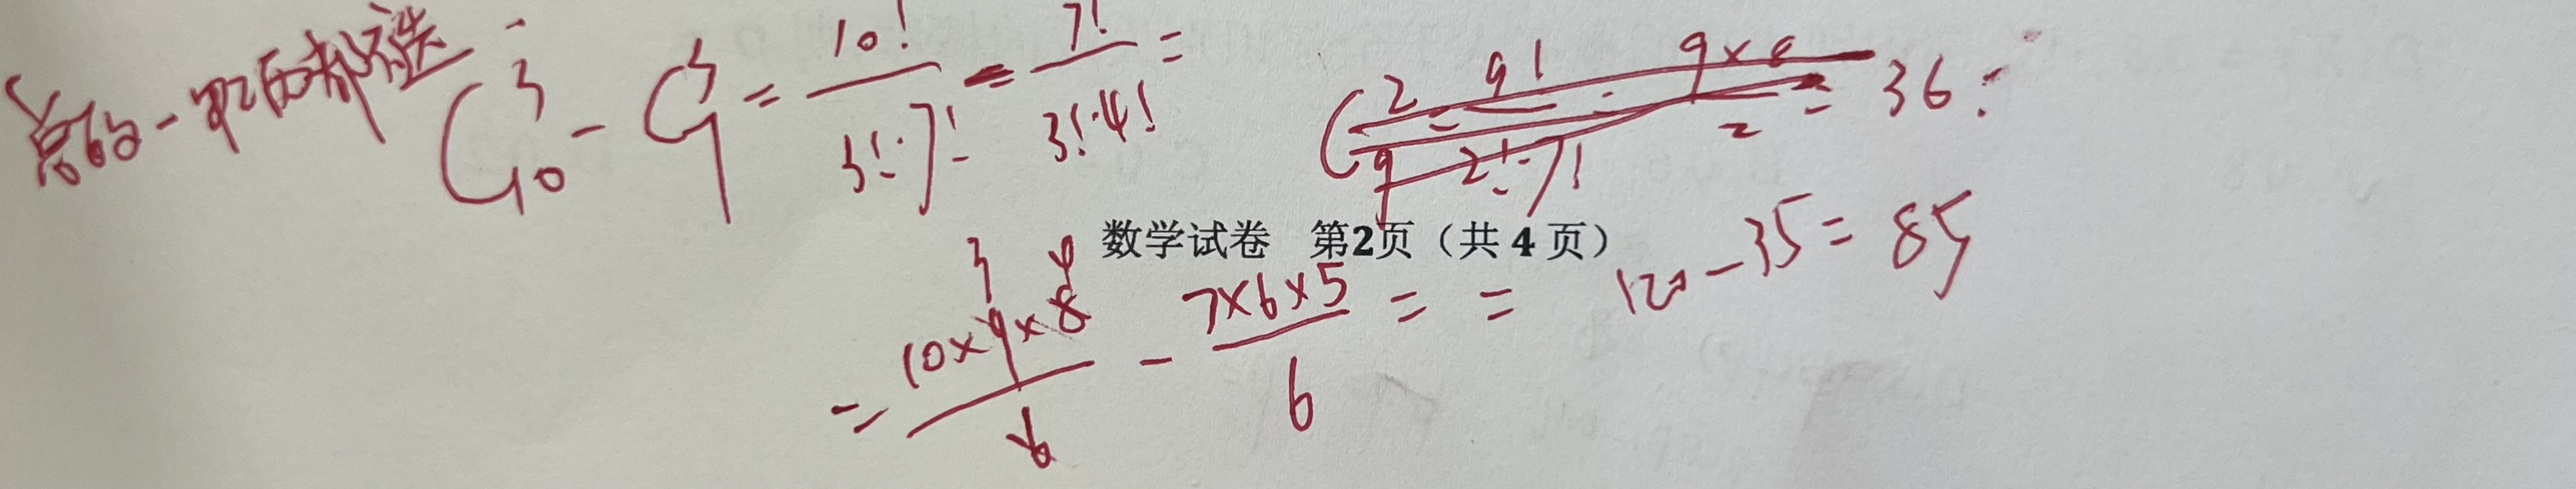 总的-甲乙丙都不选 C₁₀³ - C₇³ = 10!/3!·7! - 7!/3!·4! =
C₉² = 9!/2!·7! = 9×8/2 = 36
数学试卷 第2页（共 4 页）
= 10×9×8/6 - 7×6×5/6 = = 120-35=85